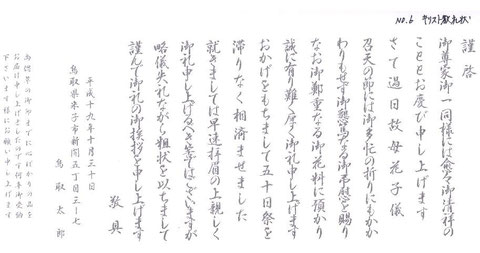 NO.6 キリスト教礼状
謹啓
御尊家御一同様には愈々御清祥の
こととお慶び申し上げます
さて過日故母花子儀
召天の節には御多忙の折りにもかか
わりませず御懇篤なる御弔慰を賜り
なお御鄭重なる御花料に預かり
誠に有り難く厚く御礼申し上げます
おかげをもちまして五十日祭を
滞りなく相済ませました
就きましては早速拝眉の上親しく
御礼申し上げるべき筈ではございますが
略儀失礼ながら粗状を以ちまして
謹んで御礼の御挨拶を申し上げます
敬具
平成十九年十月三十日
鳥取県米子市新開五丁目三ー七
鳥取太郎
尚偲草の御印までに心ばかりの品を
お届け申し上げましたので何卒御受納
下さいます様にお願い申し上げます